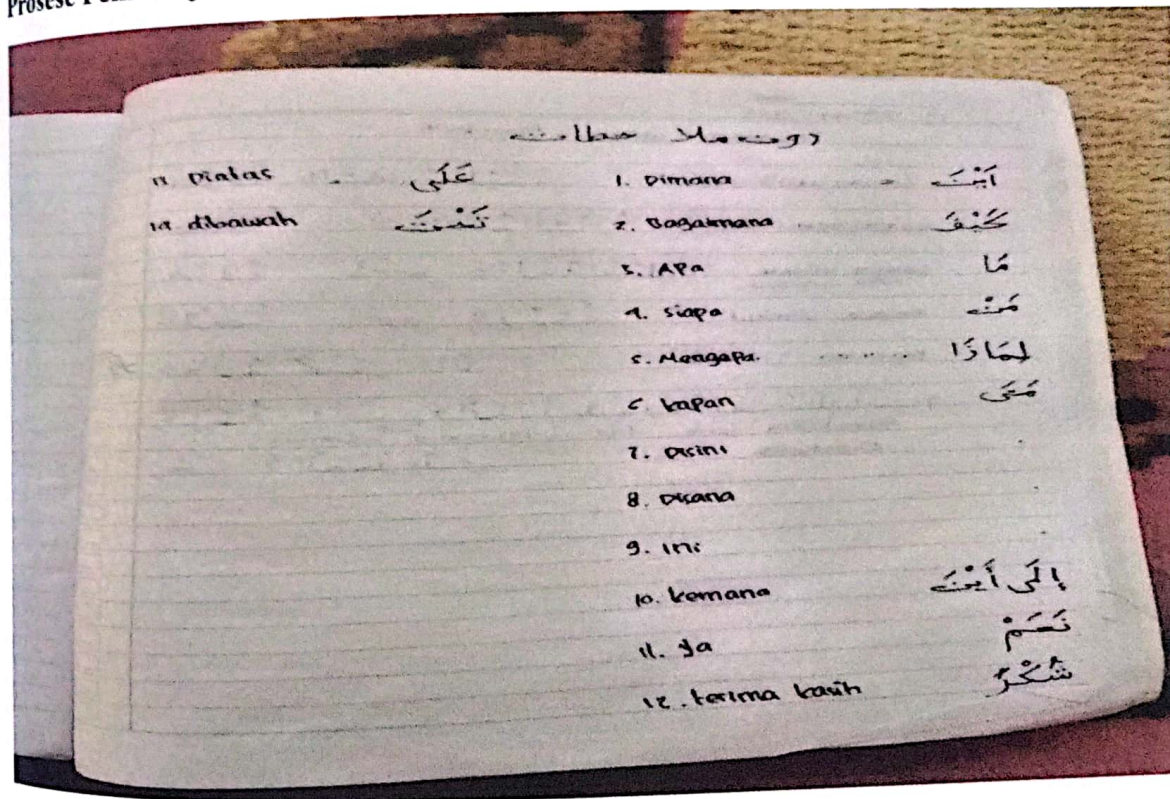 دون ملا حطات
1. Dimana أَيْنَ
2. Bagaimana كَيْفَ
3. APa مَا
4. siapa مَنْ
5. Mengapa. لِمَاذَا
6. kapan مَتَى
7. Disini
8. Disana
9. Ini
10. kemana إِلَى أَيْنَ
11. Ya نَعَمْ
12. terima kasih شُكْرً
13 Diatas عَلَى
14 dibawah تَحْتَ